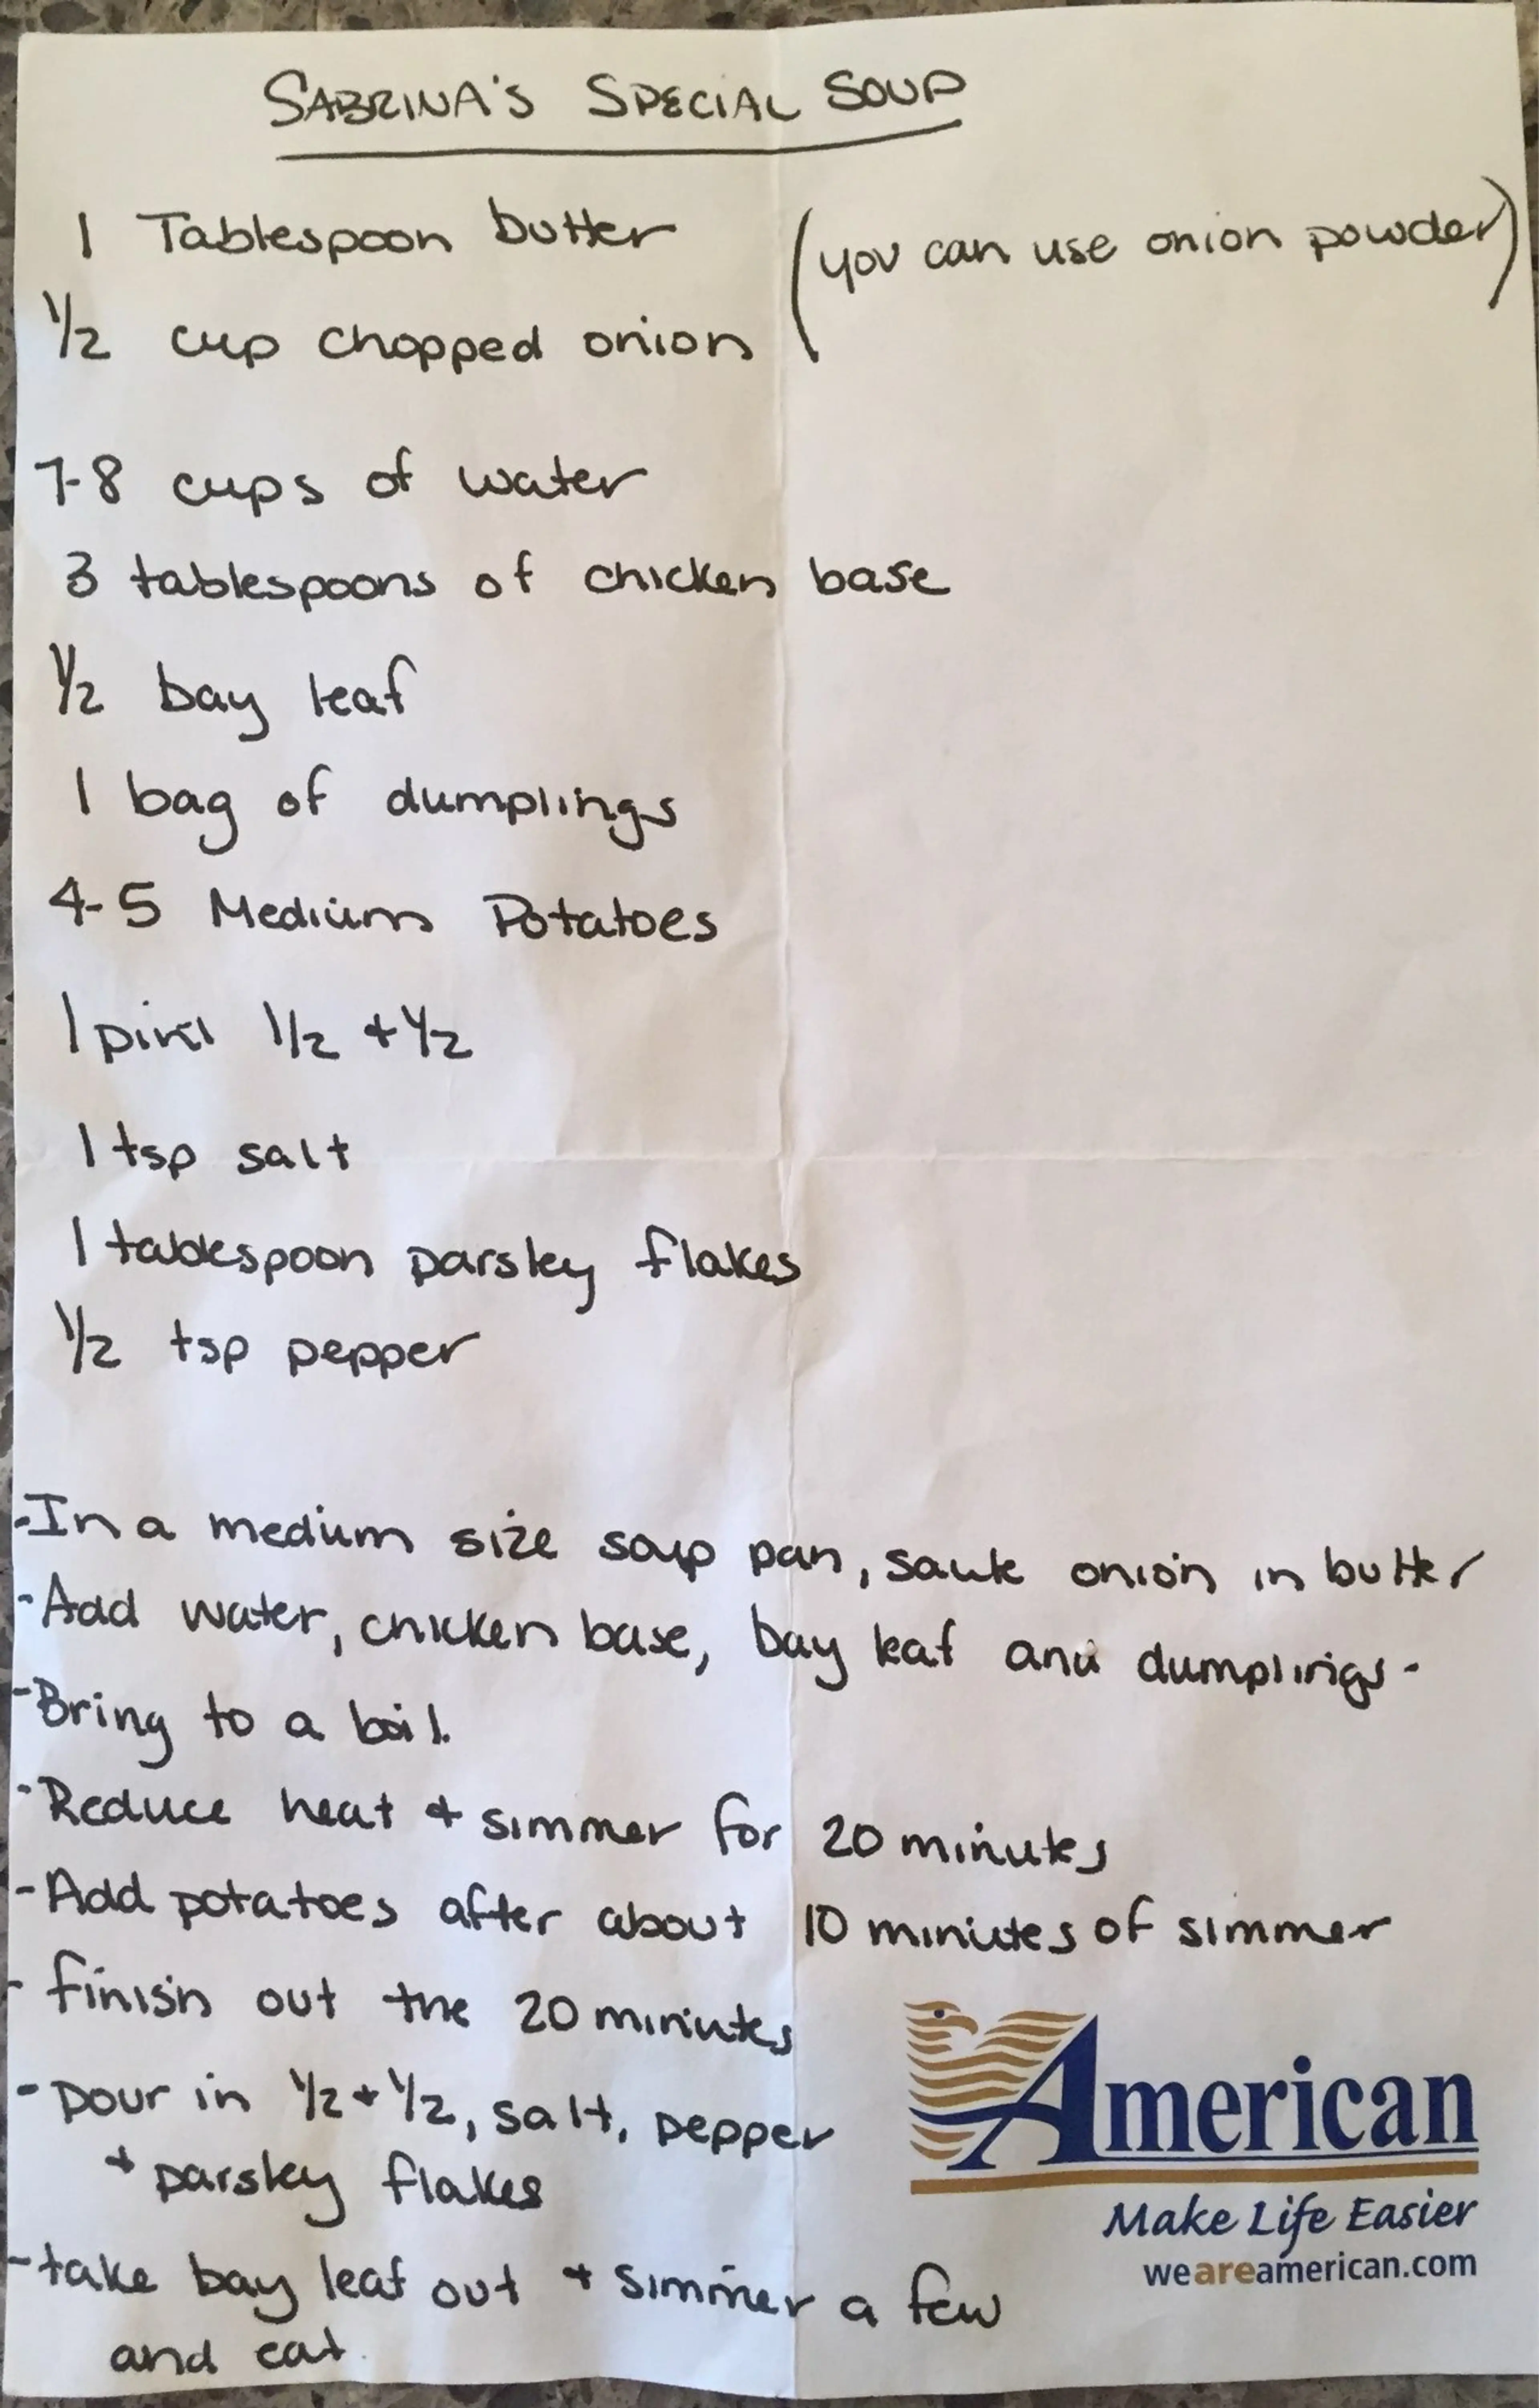 SABRINA'S SPECIAL SOUP
1 Tablespoon butter
(you can use onion powder)
1/2 cup chopped onion
7-8 cups of water
3 tablespoons of chicken base
1/2 bay leaf
1 bag of dumplings
4-5 Medium Potatoes
1 pint 1/2 + 1/2
1 tsp salt
1 tablespoon parsley flakes
1/2 tsp pepper
-In a medium size soup pan, saute onion in butter
-Add water, chicken base, bay leaf and dumplings.
-Bring to a boil.
-Reduce heat + simmer for 20 minutes
-Add potatoes after about 10 minutes of simmer
-finish out the 20 minutes
-pour in 1/2 + 1/2, salt, pepper
+ parsley flakes
-take bay leaf out + simmer a few
and eat.
American
Make Life Easier
weareamerican.com